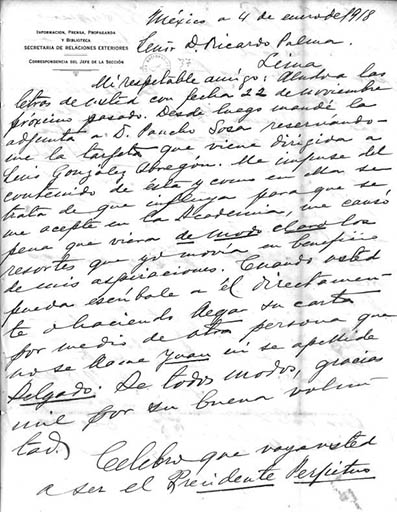 México a 4 de enero de 1918
INFORMACION, PRENSA, PROPAGANDA
Y BIBLIOTECA
SECRETARIA DE RELACIONES EXTERIORES
CORRESPONDENCIA DEL JEFE DE LA SECCIÓN
Señor D. Ricardo Palma.
Lima
Mi respetable amigo: Aludo a las
letras de usted con fecha 22 de noviembre
próximo pasado. Desde luego mandé la
adjunta a D. Pancho Sosa reservándo-
me la tarjeta que viene dirigida a
Luis González Obregón. Me impuse del
contenido de ésta y como en ella se
trata de que influya para que se
me acepte en la Academia, me causó
pena que viera de modo claro los
resortes que yo movía en beneficio
de mis aspiraciones. Cuando usted
pueda escríbale a él directamen-
te o haciendo llegar su carta
por medio de otra persona que
no se llame Juan ni se apellide
Delgado. De todos modos, gracias
mil por su buena volun-
tad.
Celebro que vaya usted
a ser el Presidente Perpetuo